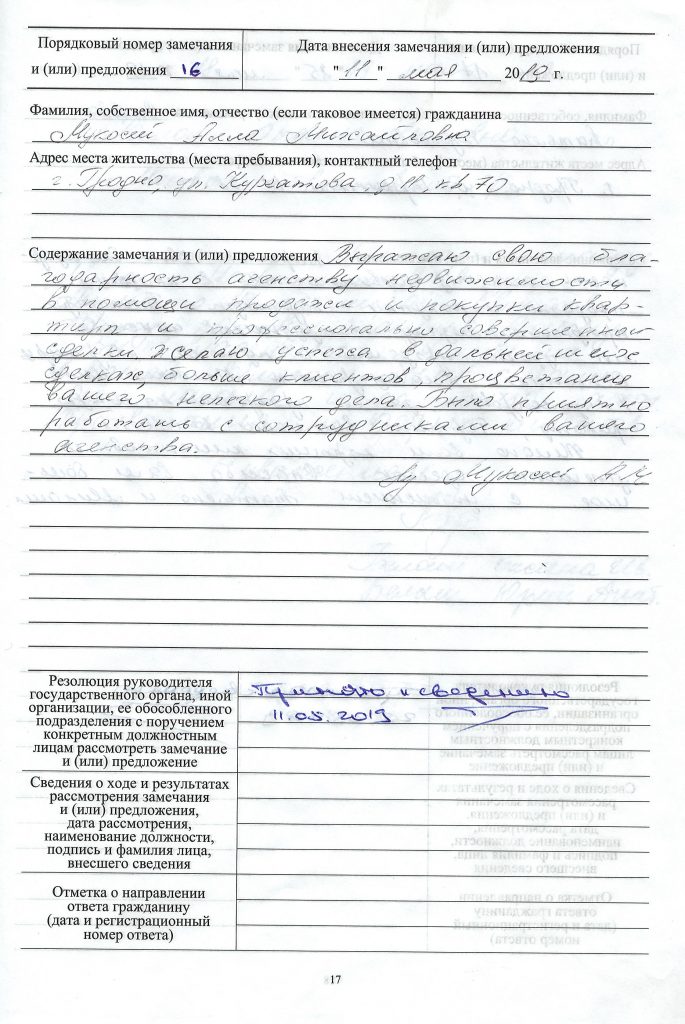 Порядковый номер замечания
и (или) предложения 16
Дата внесения замечания и (или) предложения
"11" мая 2019 г.
Фамилия, собственное имя, отчество (если таковое имеется) гражданина
Мукосей Алла Михайловна
Адрес места жительства (места пребывания), контактный телефон
г. Гродно, ул. Курчатова д 11, кв. 70
Содержание замечания и (или) предложения Выражаю свою бла-
годарность агенству недвижимости
в помощи продажи и покупки квар-
тиры и профессионально совершенной
сделки, желаю успеха в дальнейших
сделках, больше клиентов, процветания
вашего нелегкого дела. Было приятно
работать с сотрудниками вашего
агенства.
Мукосей А М
Резолюция руководителя
государственного органа, иной
организации, ее обособленного
подразделения с поручением
конкретным должностным
лицам рассмотреть замечание
и (или) предложение
Принято к сведению
11.05.2019
Сведения о ходе и результатах
рассмотрения замечания
и (или) предложения,
дата рассмотрения,
наименование должности,
подпись и фамилия лица,
внесшего сведения
Отметка о направлении
ответа гражданину
(дата и регистрационный
номер ответа)
17